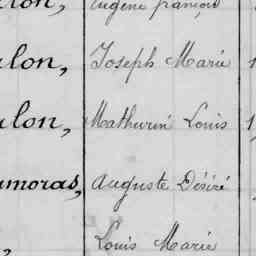 Eugène françois
alon, Joseph Marie 1
alon, Mathurin Louis 1
amoras, Auguste Désiré
Louis Marie